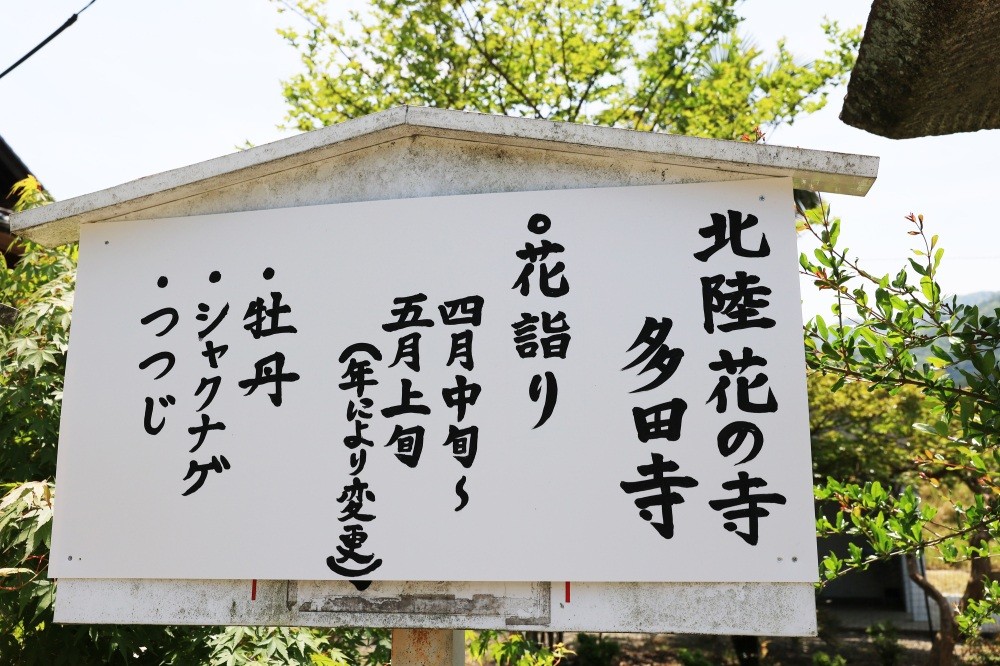 北陸花の寺
多田寺
○花詣り
四月中旬～
五月上旬
（年により変更）
・牡丹
・シャクナゲ
・つつじ